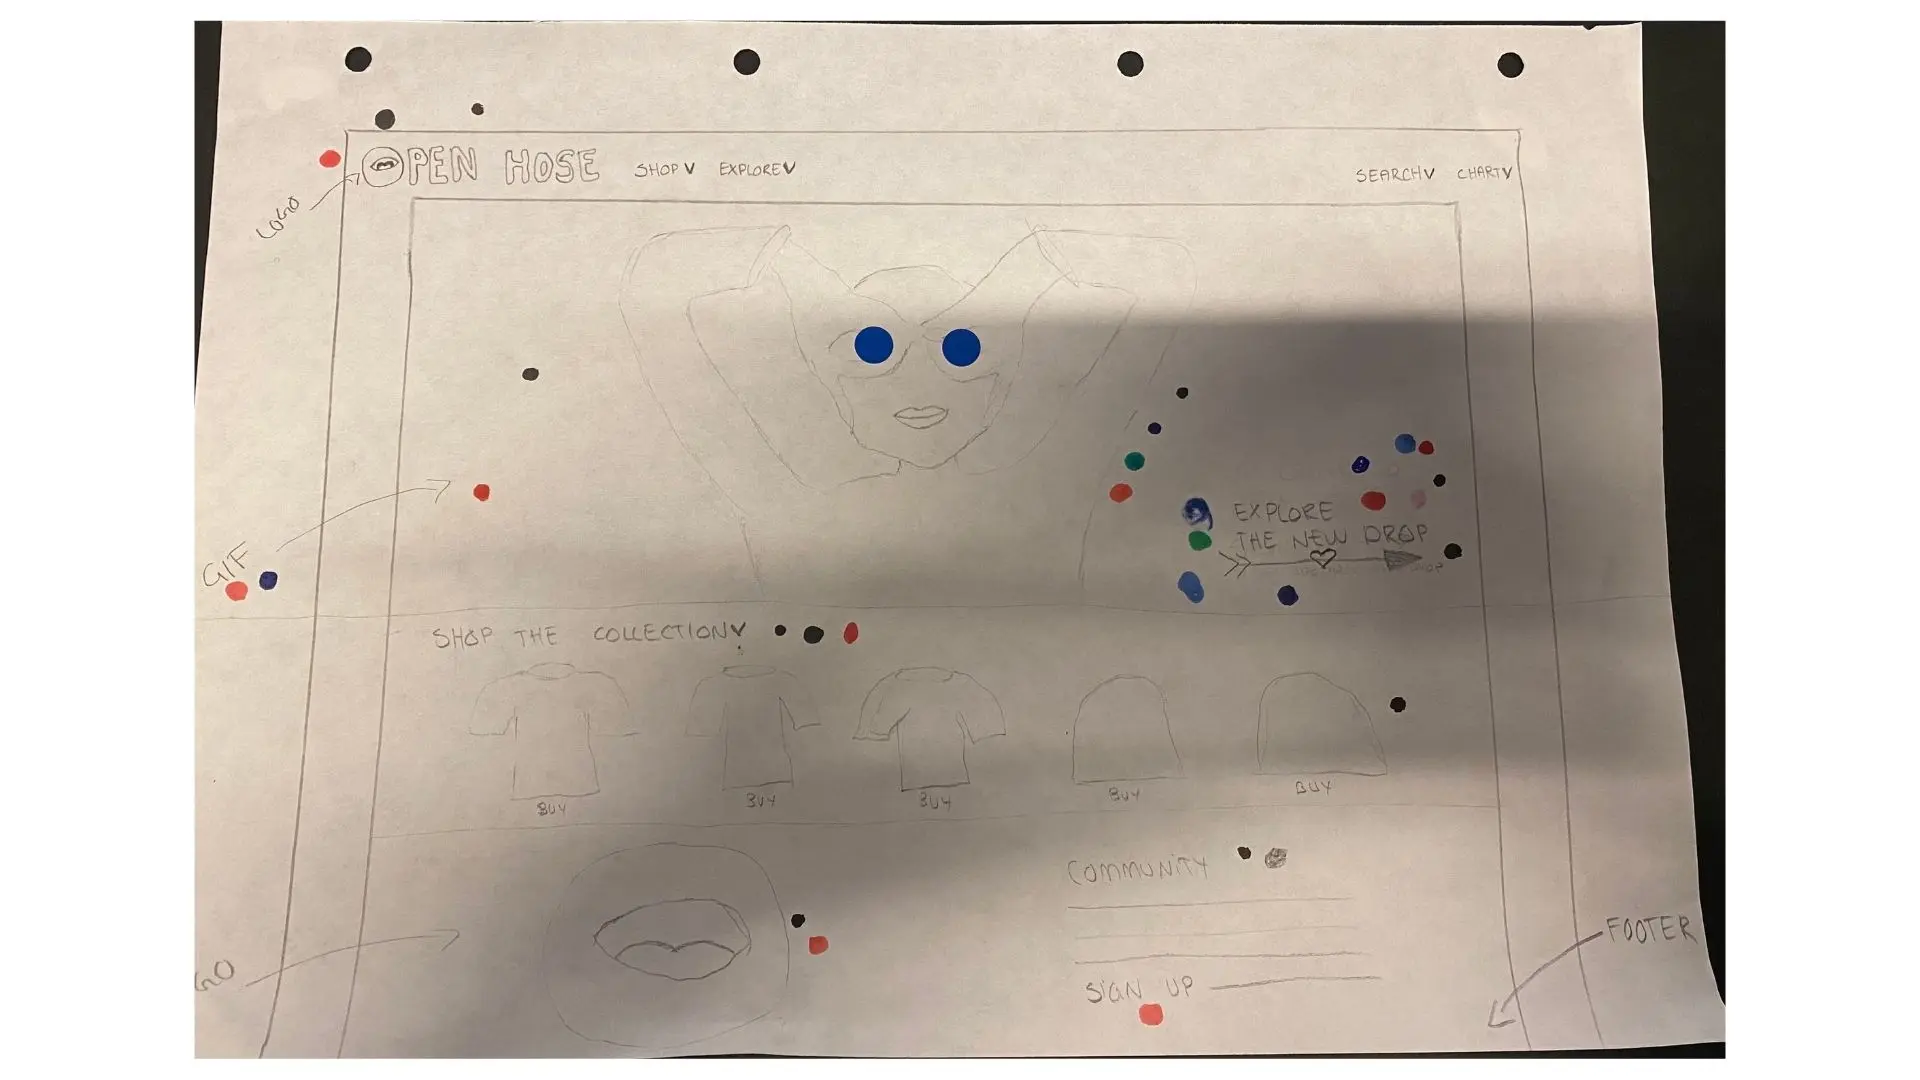 OPEN HOSE SHOP EXPLORE
SEARCH CHART
LOGO
GIF
EXPLORE
THE NEW DROP
SHOP THE COLLECTION
BUY BUY BUY BUY BUY
COMMUNITY
SIGN UP
GO
FOOTER